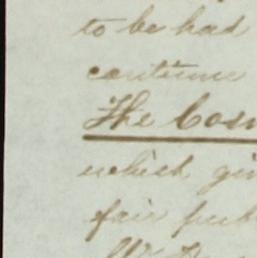 to be had
continue
The Cosm
which giv
fair pub